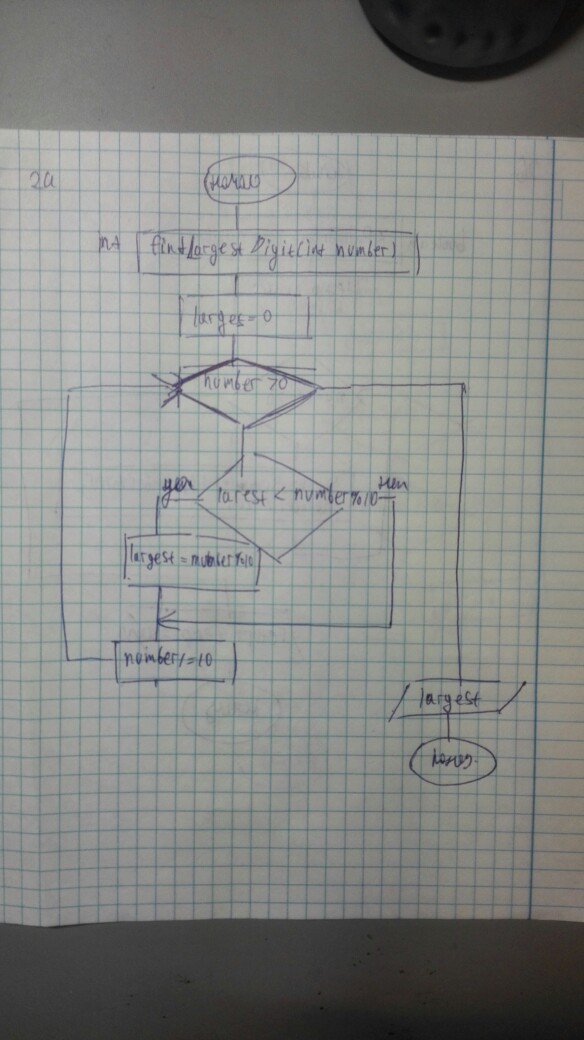 2a
начало
int findLargestDigit(int number)
largest = 0
number > 0
да
larest < number%10
нет
largest = number%10
number/=10
largest
конец